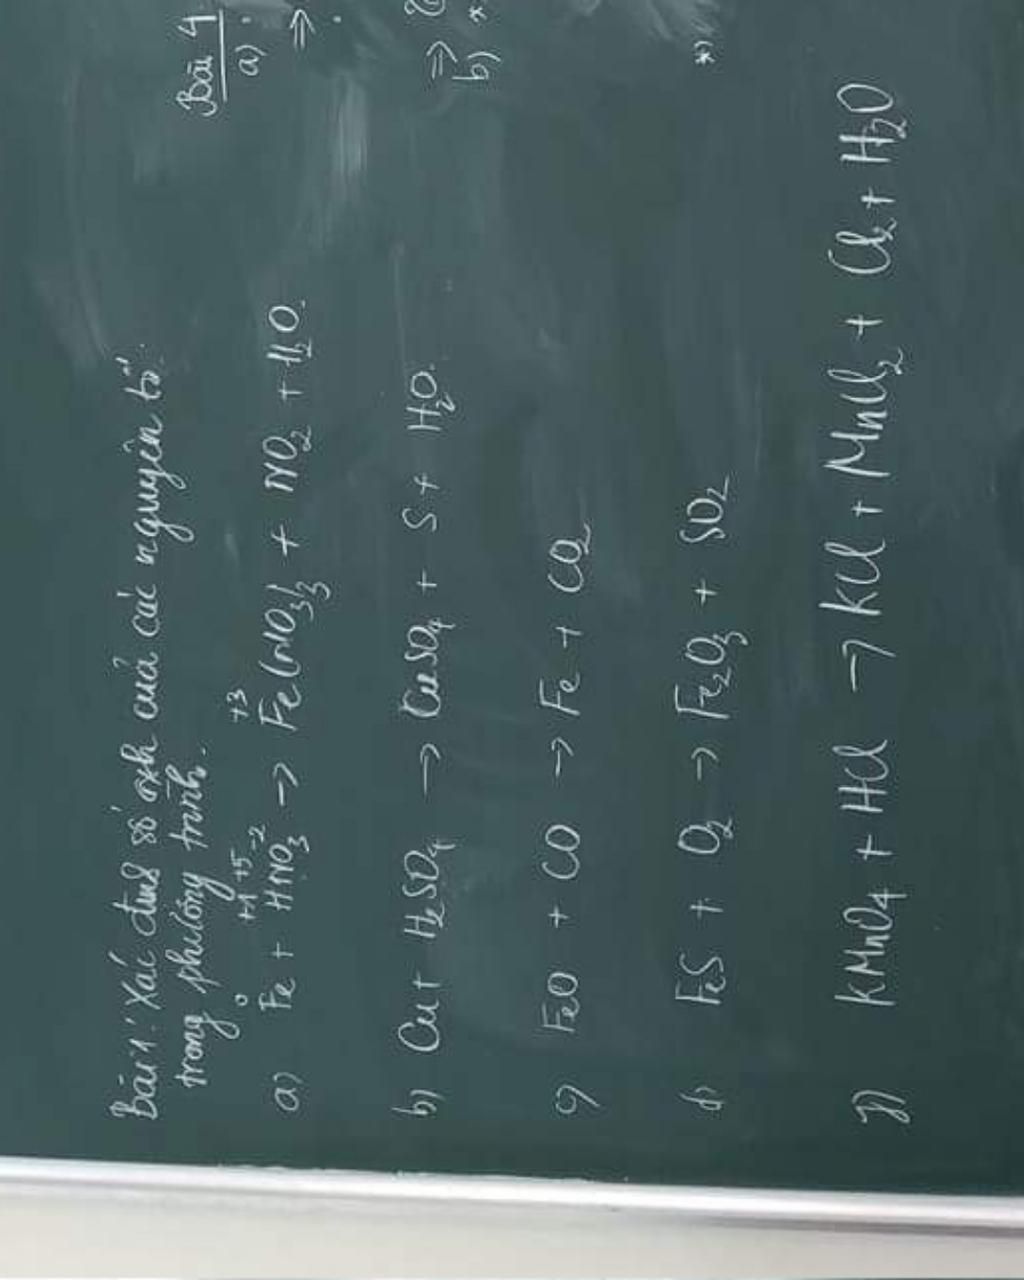 Bài 1: Xác định số oxh của các nguyên tố
trong phương trình.
0 +1 +5 -2 +3
a) Fe + HNO3 → Fe(NO3)3 + NO2 + H2O.
b) Cu + H2SO4 → CuSO4 + S + H2O.
c) FeO + CO → Fe + CO2
d) FeS + O2 → Fe2O3 + SO2
KMnO4 + HCl → KCl + MnCl2 + Cl2 + H2O
Bài 4
a) :
⇒
⇒
b) *
*)